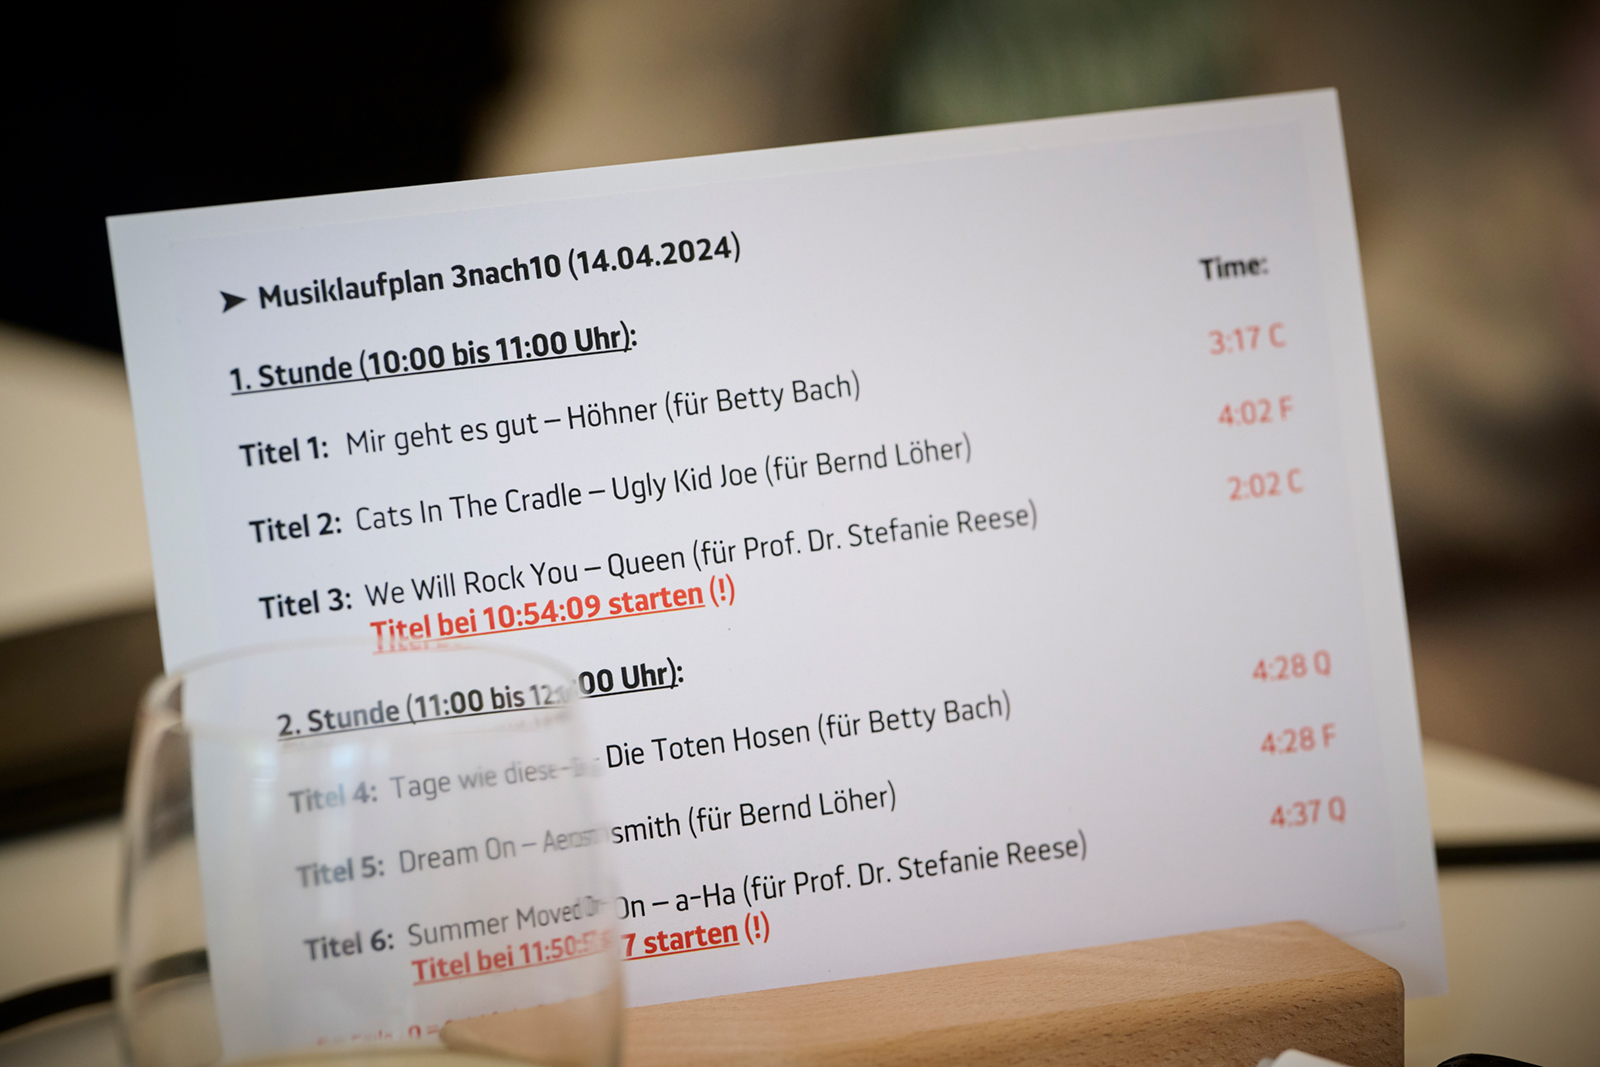 ➤ Musiklaufplan 3nach10 (14.04.2024)
Time:
1. Stunde (10:00 bis 11:00 Uhr):
Titel 1: Mir geht es gut – Höhner (für Betty Bach) 3:17 C
Titel 2: Cats In The Cradle – Ugly Kid Joe (für Bernd Löher) 4:02 F
Titel 3: We Will Rock You – Queen (für Prof. Dr. Stefanie Reese) 2:02 C
Titel bei 10:54:09 starten (!)
2. Stunde (11:00 bis 12:00 Uhr):
Titel 4: Tage wie diese – Die Toten Hosen (für Betty Bach) 4:28 Q
Titel 5: Dream On – Aerosmith (für Bernd Löher) 4:28 F
Titel 6: Summer Moved On – a-Ha (für Prof. Dr. Stefanie Reese) 4:37 Q
Titel bei starten (!)